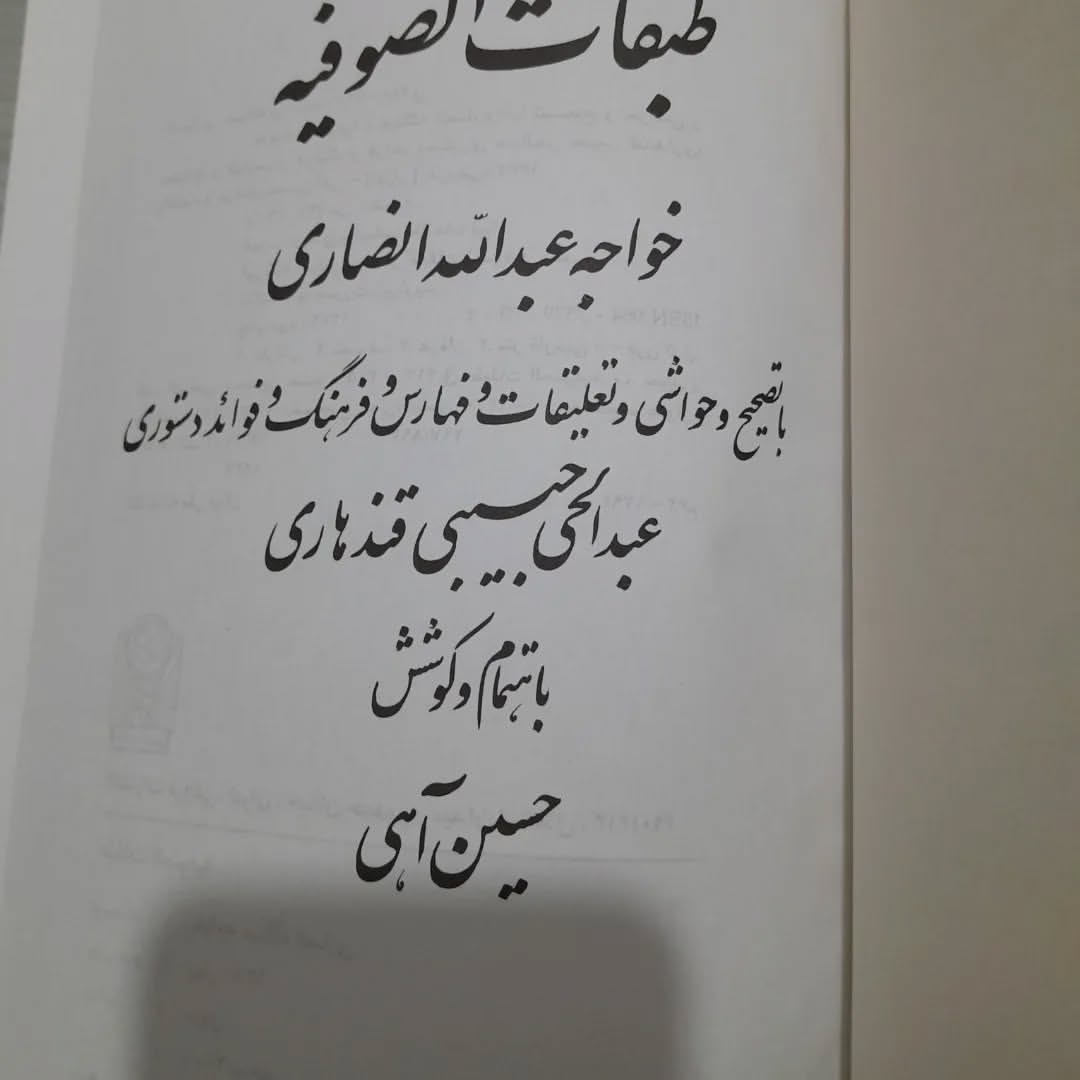 طبقات الصوفیه
خواجه عبدالله انصاری
با تصحیح و حواشی و تعلیقات و فهارس و فرهنگ و فوائد دستوری
عبدالحی حبیبی قندهاری
باهتمام و کوشش
حسین آهی